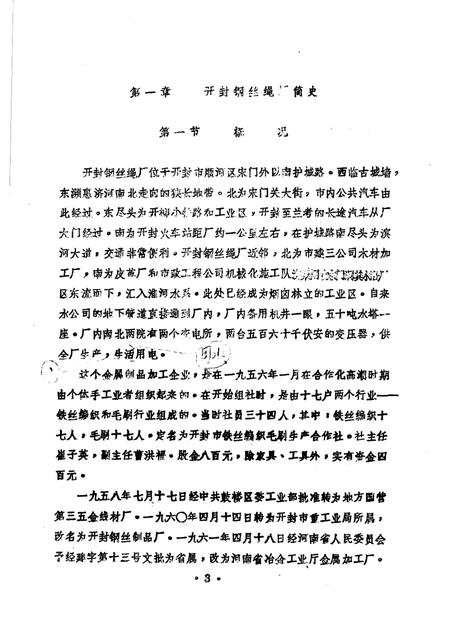 第一章 开封钢丝绳厂简史
第一节 概况
开封钢丝绳厂位于开封市顺河区宋门外以南护城路。西临古城墙，
东濒惠济河南北走向的狭长地带。北为宋门关大街，市内公共汽车由
此经过。东尽头为开柳小铁路和工业区，开封至兰考的长途汽车从厂
大门经过。南为开封火车站距厂约一公里左右，在护城路南尽头为滨
河大道，交通非常便利。开封钢丝绳厂近邻，北为市建三公司木材加
工厂，南为皮革厂和市政工程公司机械化施工队
区东流而下，汇入淮河水系。此处已经成为烟囱林立的工业区。自来
水公司的地下管道直接通到厂内，厂内备用机井一眼，五十吨水塔一
座。厂内南北两院有两个变电所，两台五百六十千伏安的变压器，供
全厂生产，生活用电。
这个金属制品加工企业，是在一九五六年一月在合作化高潮时期
由个体手工业者组织起来的。在开始组社时，是由十七户两个行业——
铁丝编织和毛刷行业组成的。当时社员三十四人，其中：铁丝编织十
七人，毛刷十七人。定名为开封市铁丝编织毛刷生产合作社。社主任
崔子英，副主任曹洪福。股金八百元，除家具、工具外，实有资金四
百元。
一九五八年七月十七日经中共鼓楼区委工业部批准转为地方国营
第三五金线材厂。一九六〇年四月十四日转为开封市重工业局所属，
改名为开封钢丝制品厂。一九六一年四月十八日经河南省人民委员会
予经薛字第十三号文批为省属，改为河南省冶金工业厅金属加工厂。
·3·